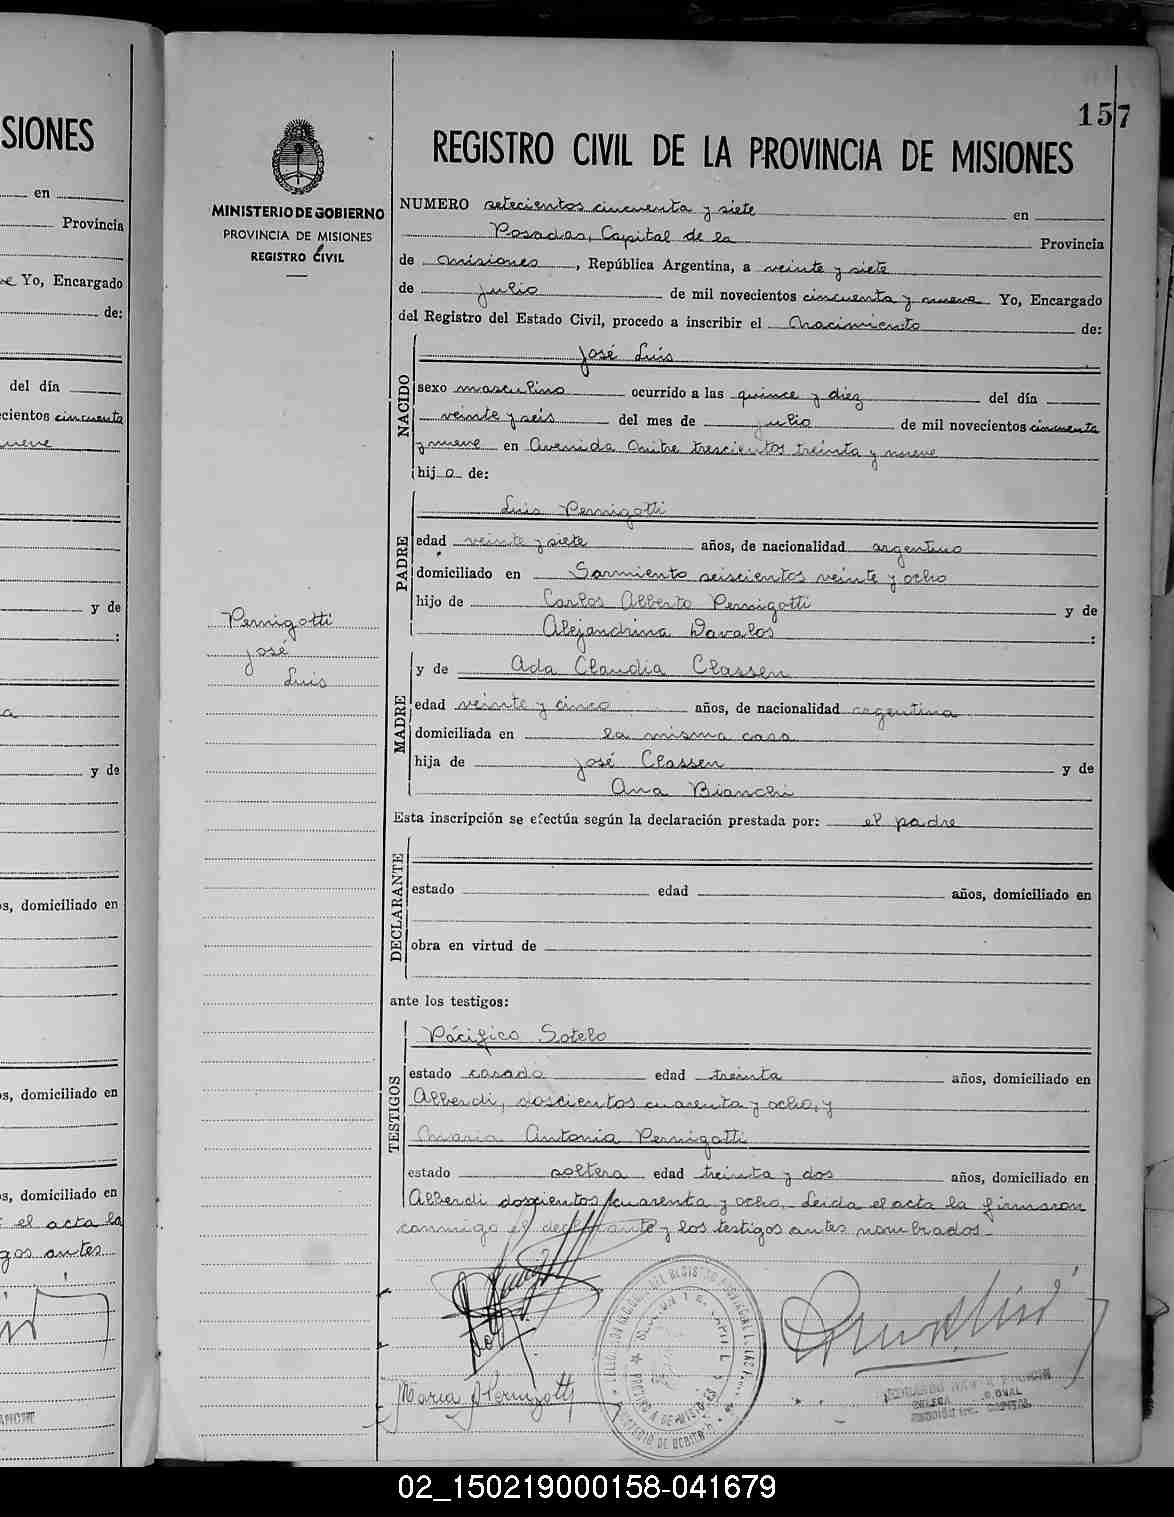 SIONES
en
Provincia
Yo, Encargado
de:
del día
cientos cincuenta
nueve
y de
:
y de
s, domiciliado en
s, domiciliado en
s, domiciliado en
el acta la
gos antes
157
REGISTRO CIVIL DE LA PROVINCIA DE MISIONES
MINISTERIO DE GOBIERNO
PROVINCIA DE MISIONES
REGISTRO CIVIL
Pernigotti
José
Luis
NUMERO setecientos cincuenta y siete en
Posadas, Capital de la Provincia
de Misiones, República Argentina, a veinte y siete
de julio de mil novecientos cincuenta y nueve Yo, Encargado
del Registro del Estado Civil, procedo a inscribir el Nacimiento de:
NACIDO
José Luis
sexo masculino ocurrido a las quince y diez del día
veinte y seis del mes de julio de mil novecientos cincuenta
y nueve en Avenida Mitre trescientos treinta y nueve
hijo de:
PADRE
Luis Pernigotti
edad veinte y siete años, de nacionalidad argentino
domiciliado en Sarmiento seiscientos veinte y ocho
hijo de Carlos Alberto Pernigotti y de
Alejandrina Davalos :
MADRE
y de Ada Claudia Classen
edad veinte y cinco años, de nacionalidad argentina
domiciliada en la misma casa
hija de José Classen y de
Ana Bianchi
Esta inscripción se efectúa según la declaración prestada por: el padre
DECLARANTE
estado edad años, domiciliado en
obra en virtud de
ante los testigos:
TESTIGOS
Pácifico Sotelo
estado casado edad treinta años, domiciliado en
Alberdi, doscientos cuarenta y ocho, y
Maria Antonia Pernigotti
estado soltera edad treinta y dos años, domiciliado en
Alberdi doscientos cuarenta y ocho. Leida el acta la firmaron
conmigo el declarante y los testigos antes nombrados
Maria A Pernigotti
02_150219000158-041679